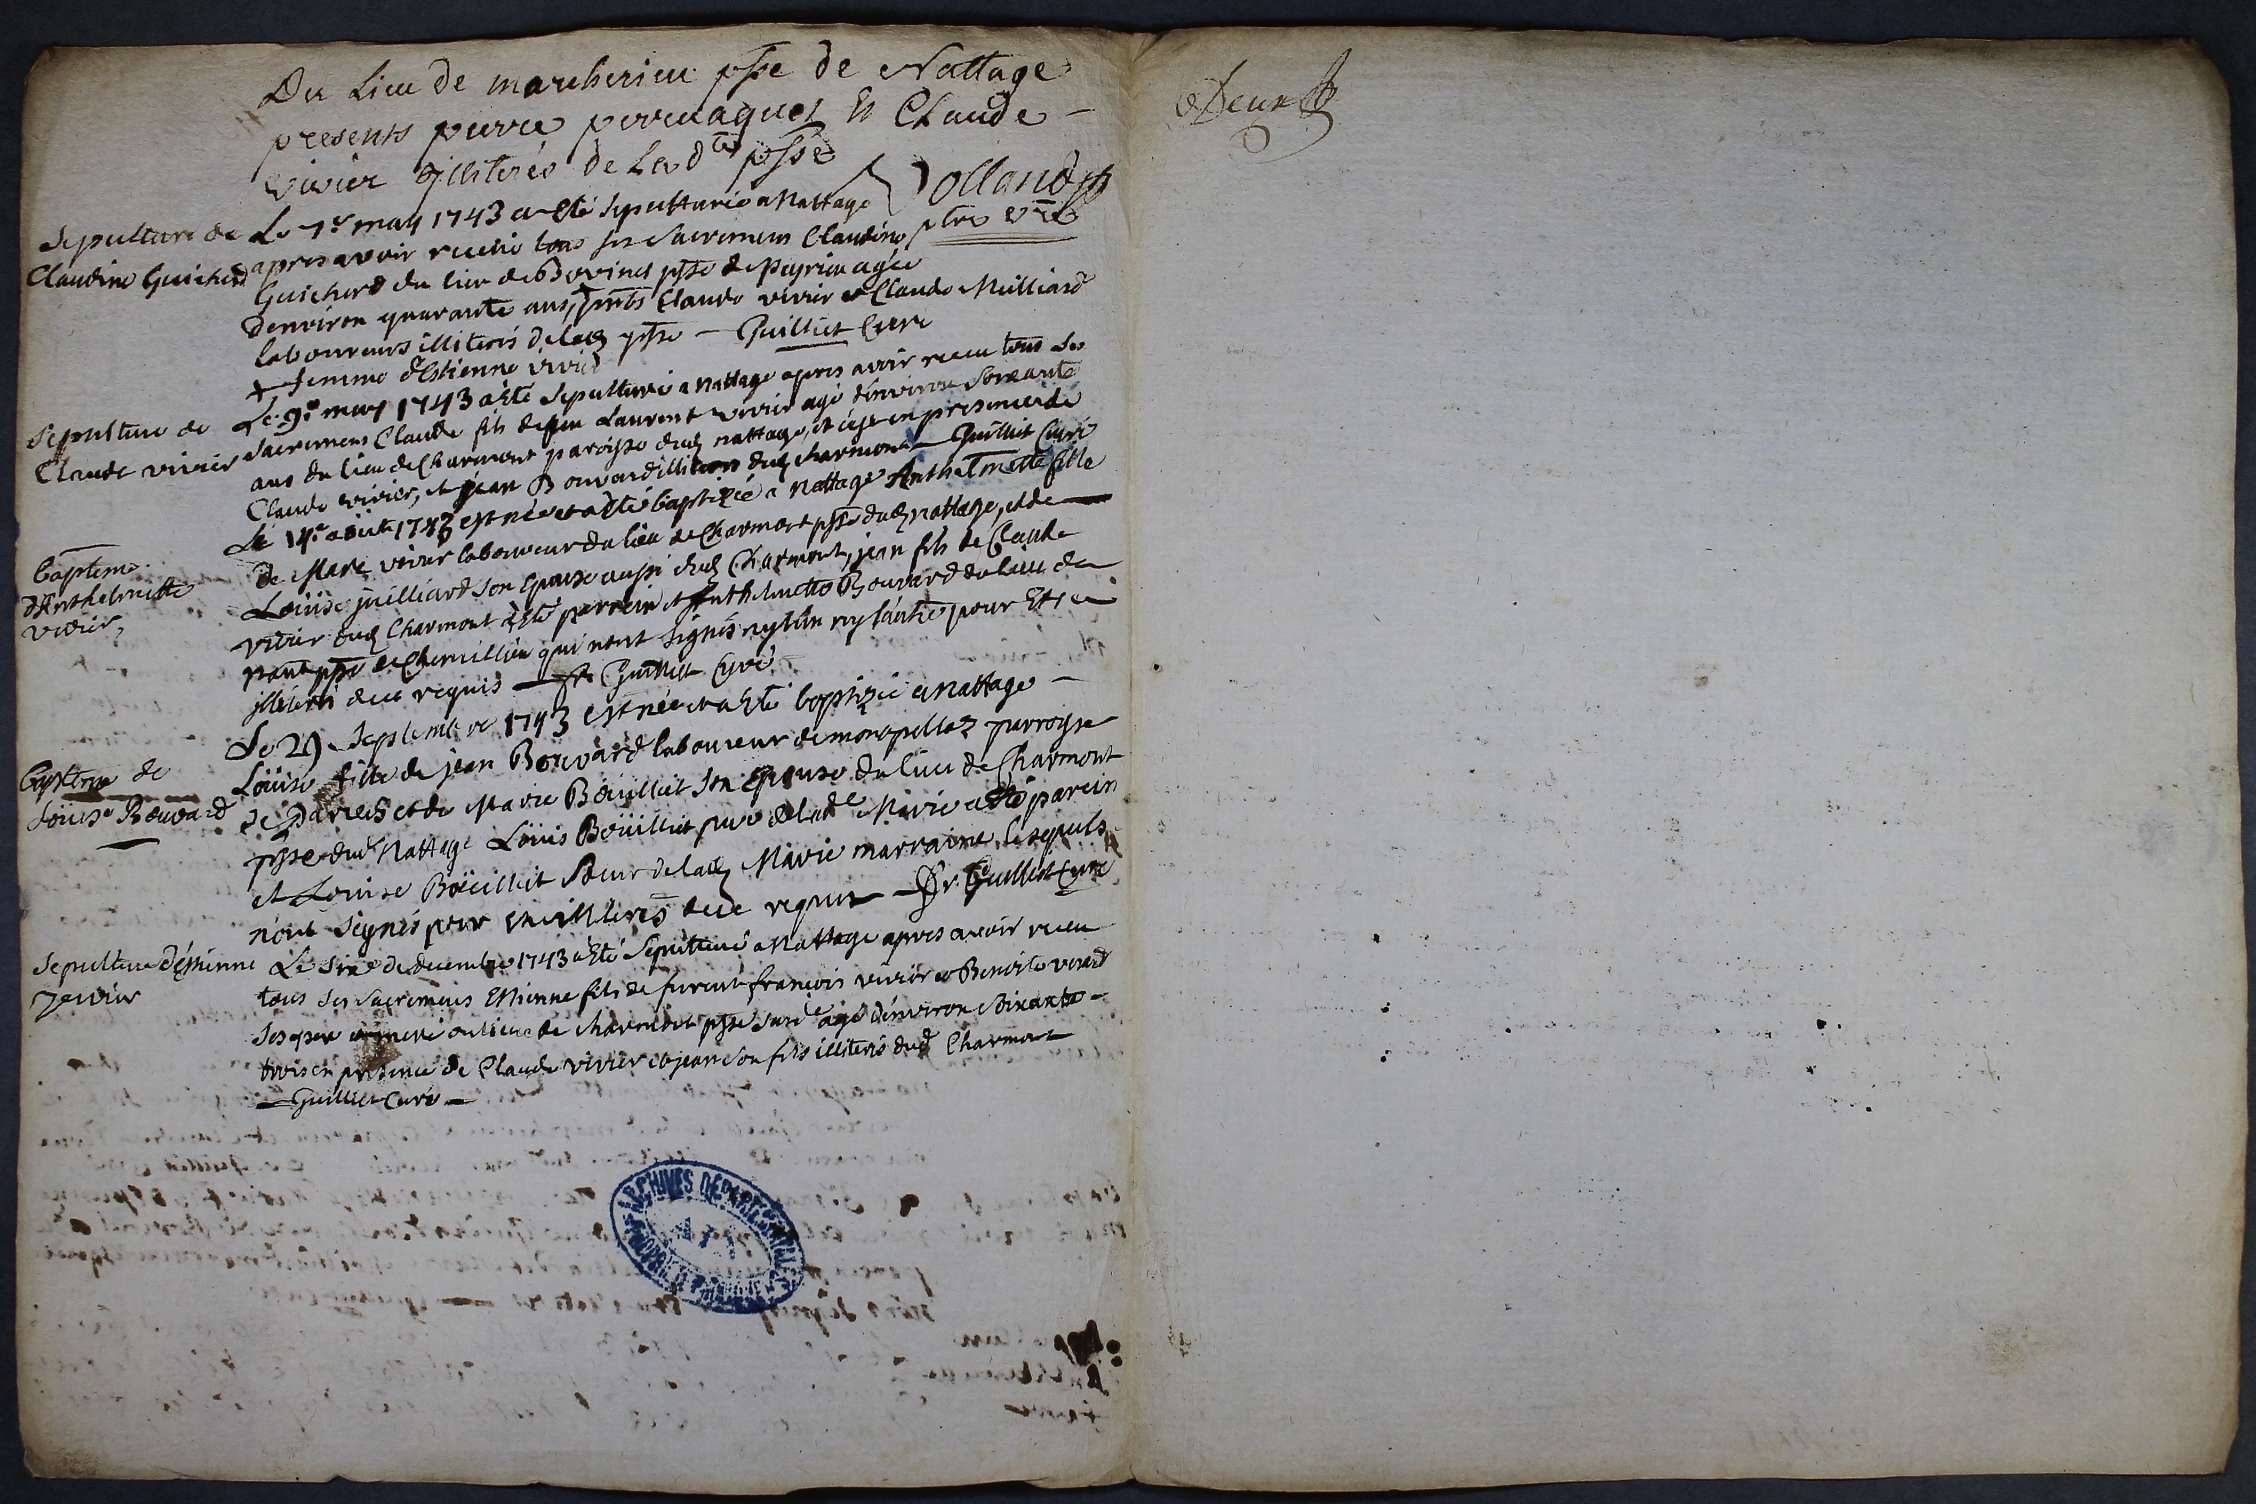 Du Lieu de marcherieu psse de Nattage
presents pierre perreaguet Et Claude
vivier illiterés de Lad te psse
Volland
ptre vre
Sepulture de
Claudine Guichard
Le 7e may 1743 a eté sepulturée a Nattage
apres avoir receu tous ses sacremens Claudine
Guichard du lieu de Bovinel psse de Peyrieu agée
denviron quarante ans, + pnts Claude vivier et Claude Milliard
laboureurs illiterés delad psse — Guilliet Curé
+ femme d'Estienne vivier
Sepulture de
Claude vivier
Le 9e may 1743 a Eté sepulturé a Nattage apres avoir receu tous ses
sacremens Claude fils de feu Laurent vivier agé d'environ soixante
ans du lieu de Charmont paroisse dud nattage, et ce en presence de
Claude vivier, et jean Bouvard illiterés dud charmont — Guilliet Curé
Bapteme
d'Anthelmette
vivier,
Le 14e aoüt 1743 est née et a eté baptizée a Nattage Anthelmette fille
de Marc vivier laboureur du lieu de Charmont psse dud nattage, et de
Louise juilliard son epouse aussi dud Charmont, jean fils de Claude
vivier dud Charmont a Eté parrein et Anthelmette Bouvard du lieu de
nant psse de Chemillieu qui n'ont signés ny l'un ny l'autre pour Etre
illiterés de ce requis — Guilliet Curé
Bapteme de
Louise Bouvard
Le 29 septembre 1743 est née et a Eté baptizée a Nattage —
Loüise fille de jean Bouvard laboureur de montpellaz parroisse
de Parves et de Marie Boüilliet son Epouse du lieu de Charmont
psse dud Nattage Loüis Boüilliet pere de lad e Marie a Eté parein
et Louise Boüilliet soeur de lad Marie marraine, lesquels
n'ont signés pour etre illiterés de ce requis — Guilliet Curé
Sepulture d'Estienne
vivier
Le sixe de decembre 1743 a Eté sepulturé a Nattage apres avoir receu
tous ses sacremens Estienne fils de furent françois vivier et Benoite
ses pere et mere du lieu de charmont psse susd e agé d'environ soixante
trois en presence de Claude vivier et jean son fils illiterés dud Charmont
— Guilliet Curé —
ARCHIVES DEPARTEMENTALES
AIN
Deux